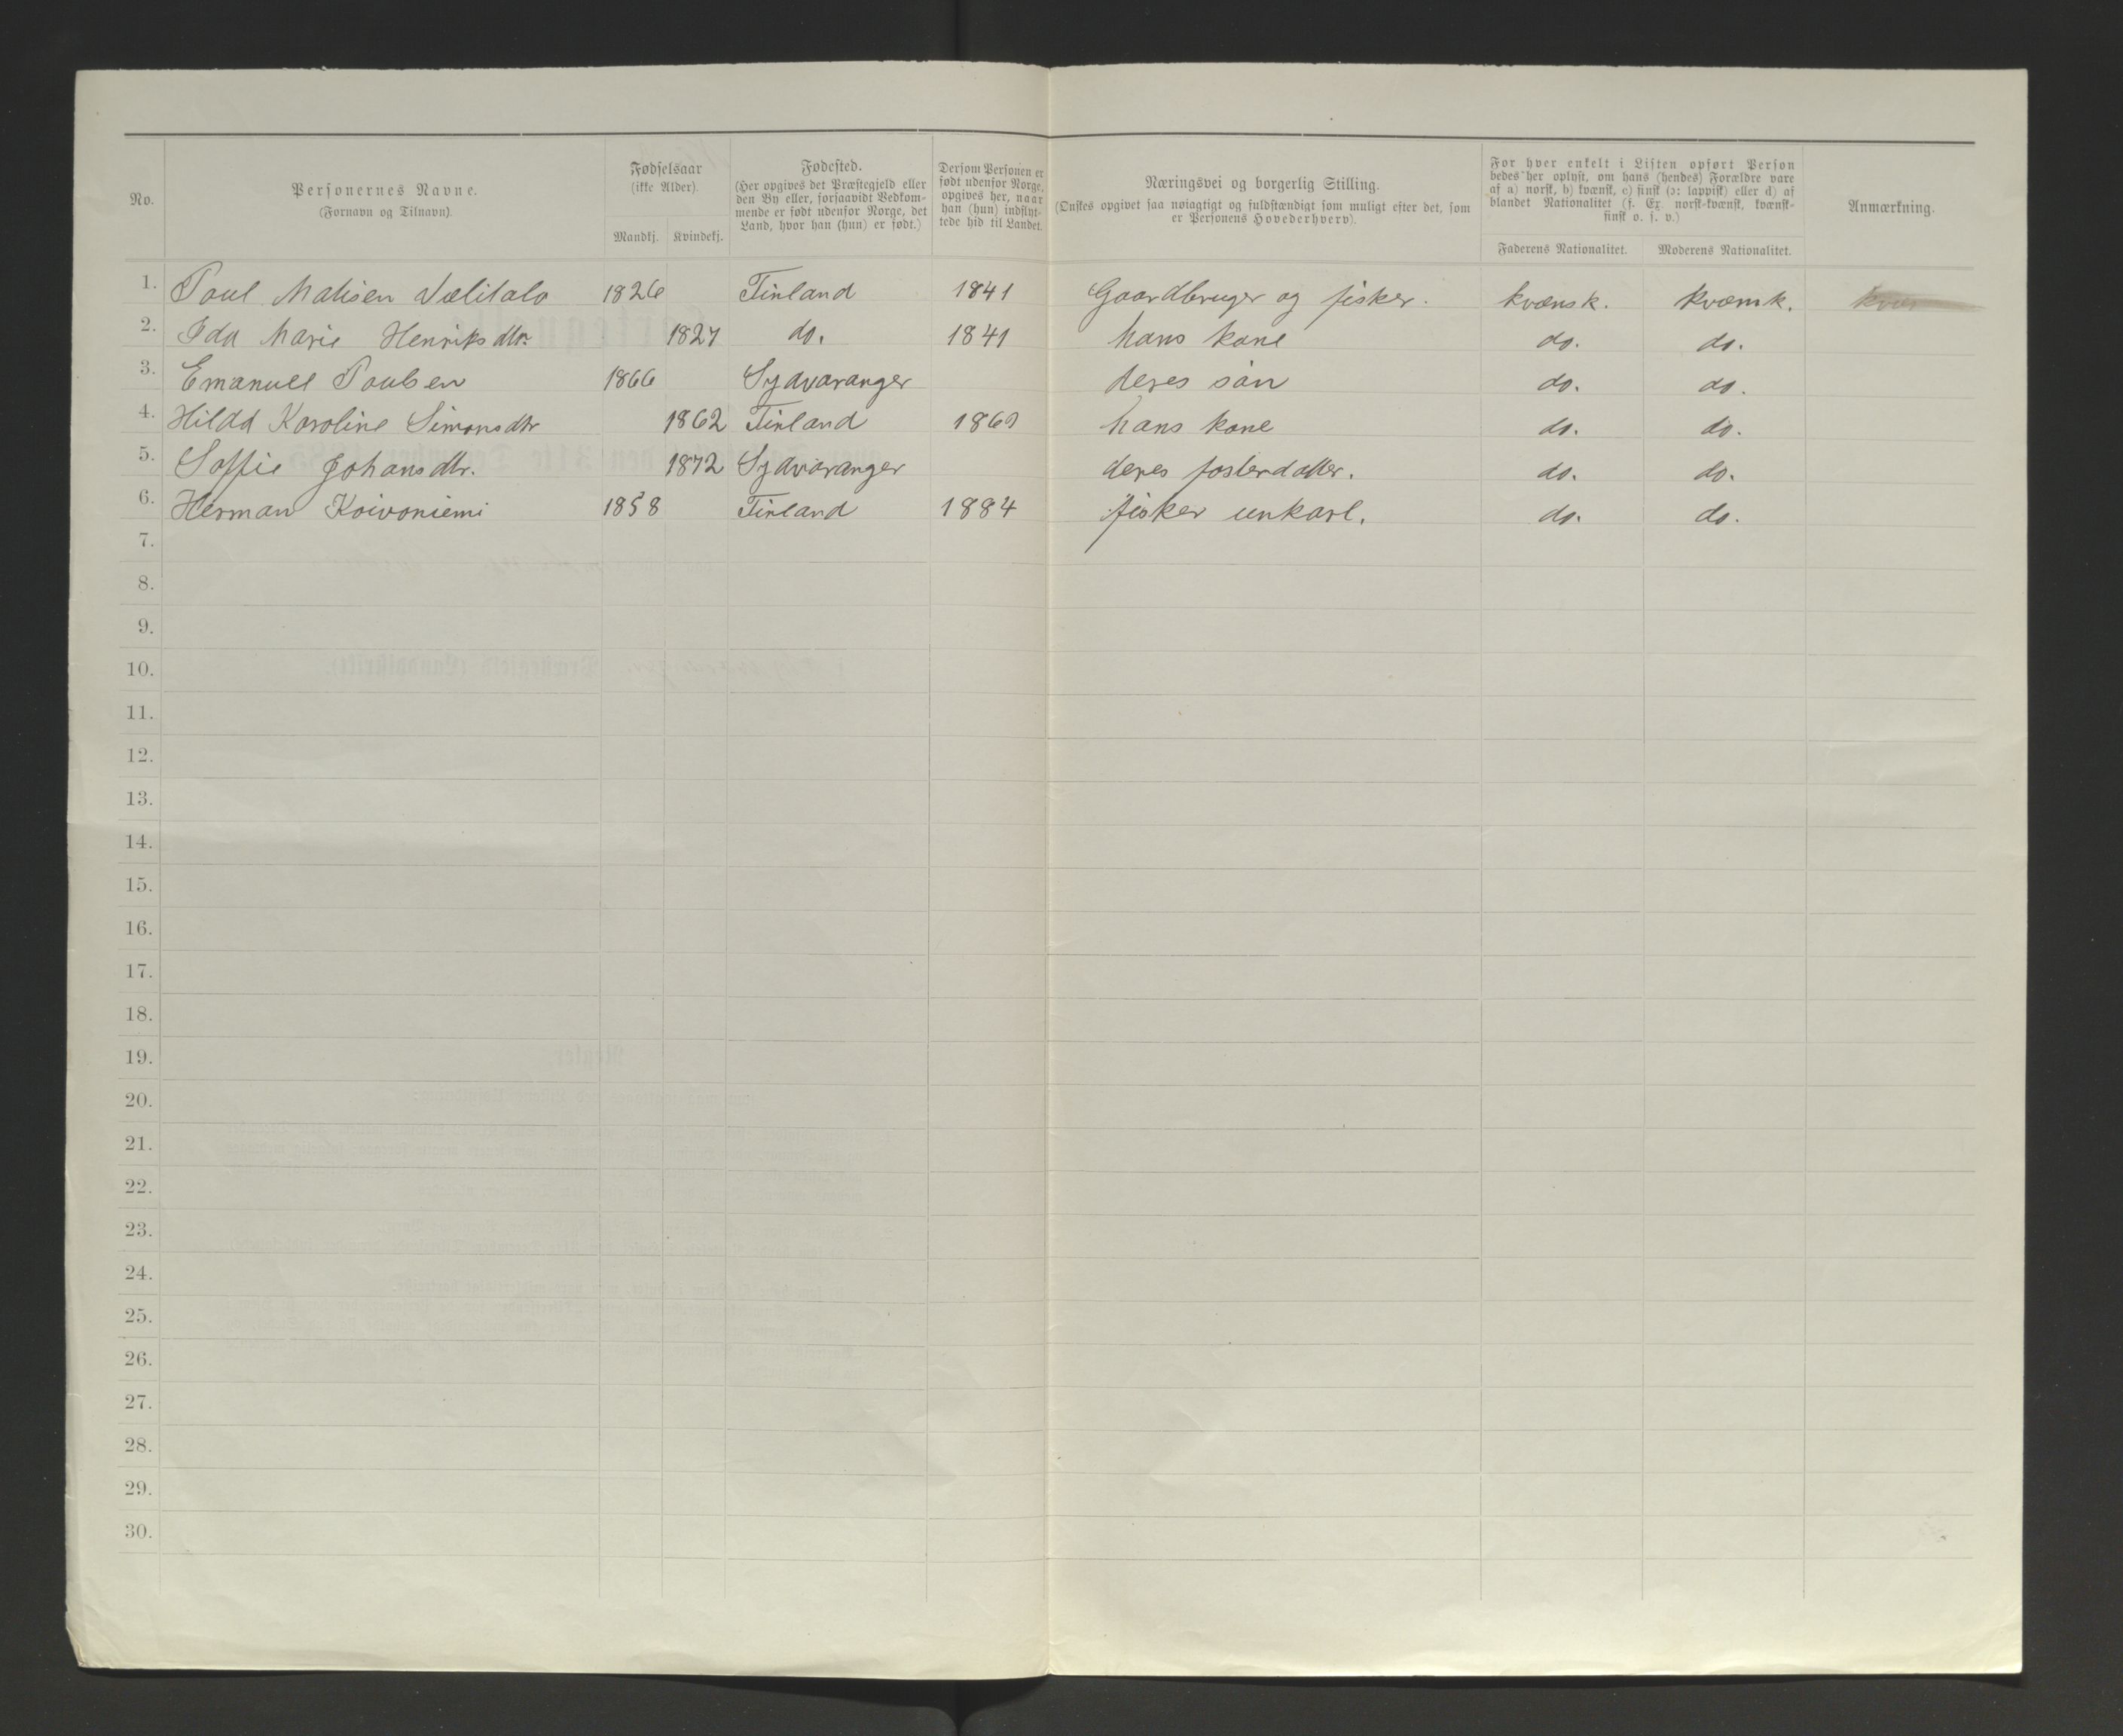 No.
Personernes Navne.
(Fornavn og Tilnavn).
Fødselsaar
(ikke Alder).
Mandkj. Kvindekj.
Fødested.
(Her opgives det Præstegjeld eller
den By eller, forsaavidt Vedkom-
mende er født udenfor Norge, det
Land, hvor han (hun) er født.)
Dersom Personen er
født udenfor Norge,
opgives her, naar
han (hun) indflyt-
tede hid til Landet.
Næringsvei og borgerlig Stilling.
(Ønskes opgivet saa nøiagtigt og fuldstændigt som muligt efter det, som
er Personens Hovederhverv).
For hver enkelt i Listen opført Person
bedes her oplyst, om hans (hendes) Forældre vare
af a) norsk, b) kvænsk, c) finsk (ɔ: lappisk) eller d) af
blandet Nationalitet (f. Ex. norsk-kvænsk, kvænsk-
finsk o. s. v.)
Faderens Nationalitet. Moderens Nationalitet.
Anmærkning.
1. Paul Matisen Vælitalo 1826 Finland 1841 Gaardbruger og fisker. kvænsk. kvænsk.
2. Ida Marie Henriksdtr. 1827 do. 1841 hans kone do. do.
3. Emanuel Paulsen 1866 Sydvaranger deres sön do. do.
4. Hilda Karoline Simonsdtr 1862 Finland hans kone do. do.
5. Soffie Johansdtr. 1872 Sydvaranger deres fosterdatter. do. do.
6. Herman Koivoniemi 1858 Finland 1884 fisker unkarl. do. do.
7.
8.
9.
10.
11.
12.
13.
14.
15.
16.
17.
18.
19.
20.
21.
22.
23.
24.
25.
26.
27.
28.
29.
30.